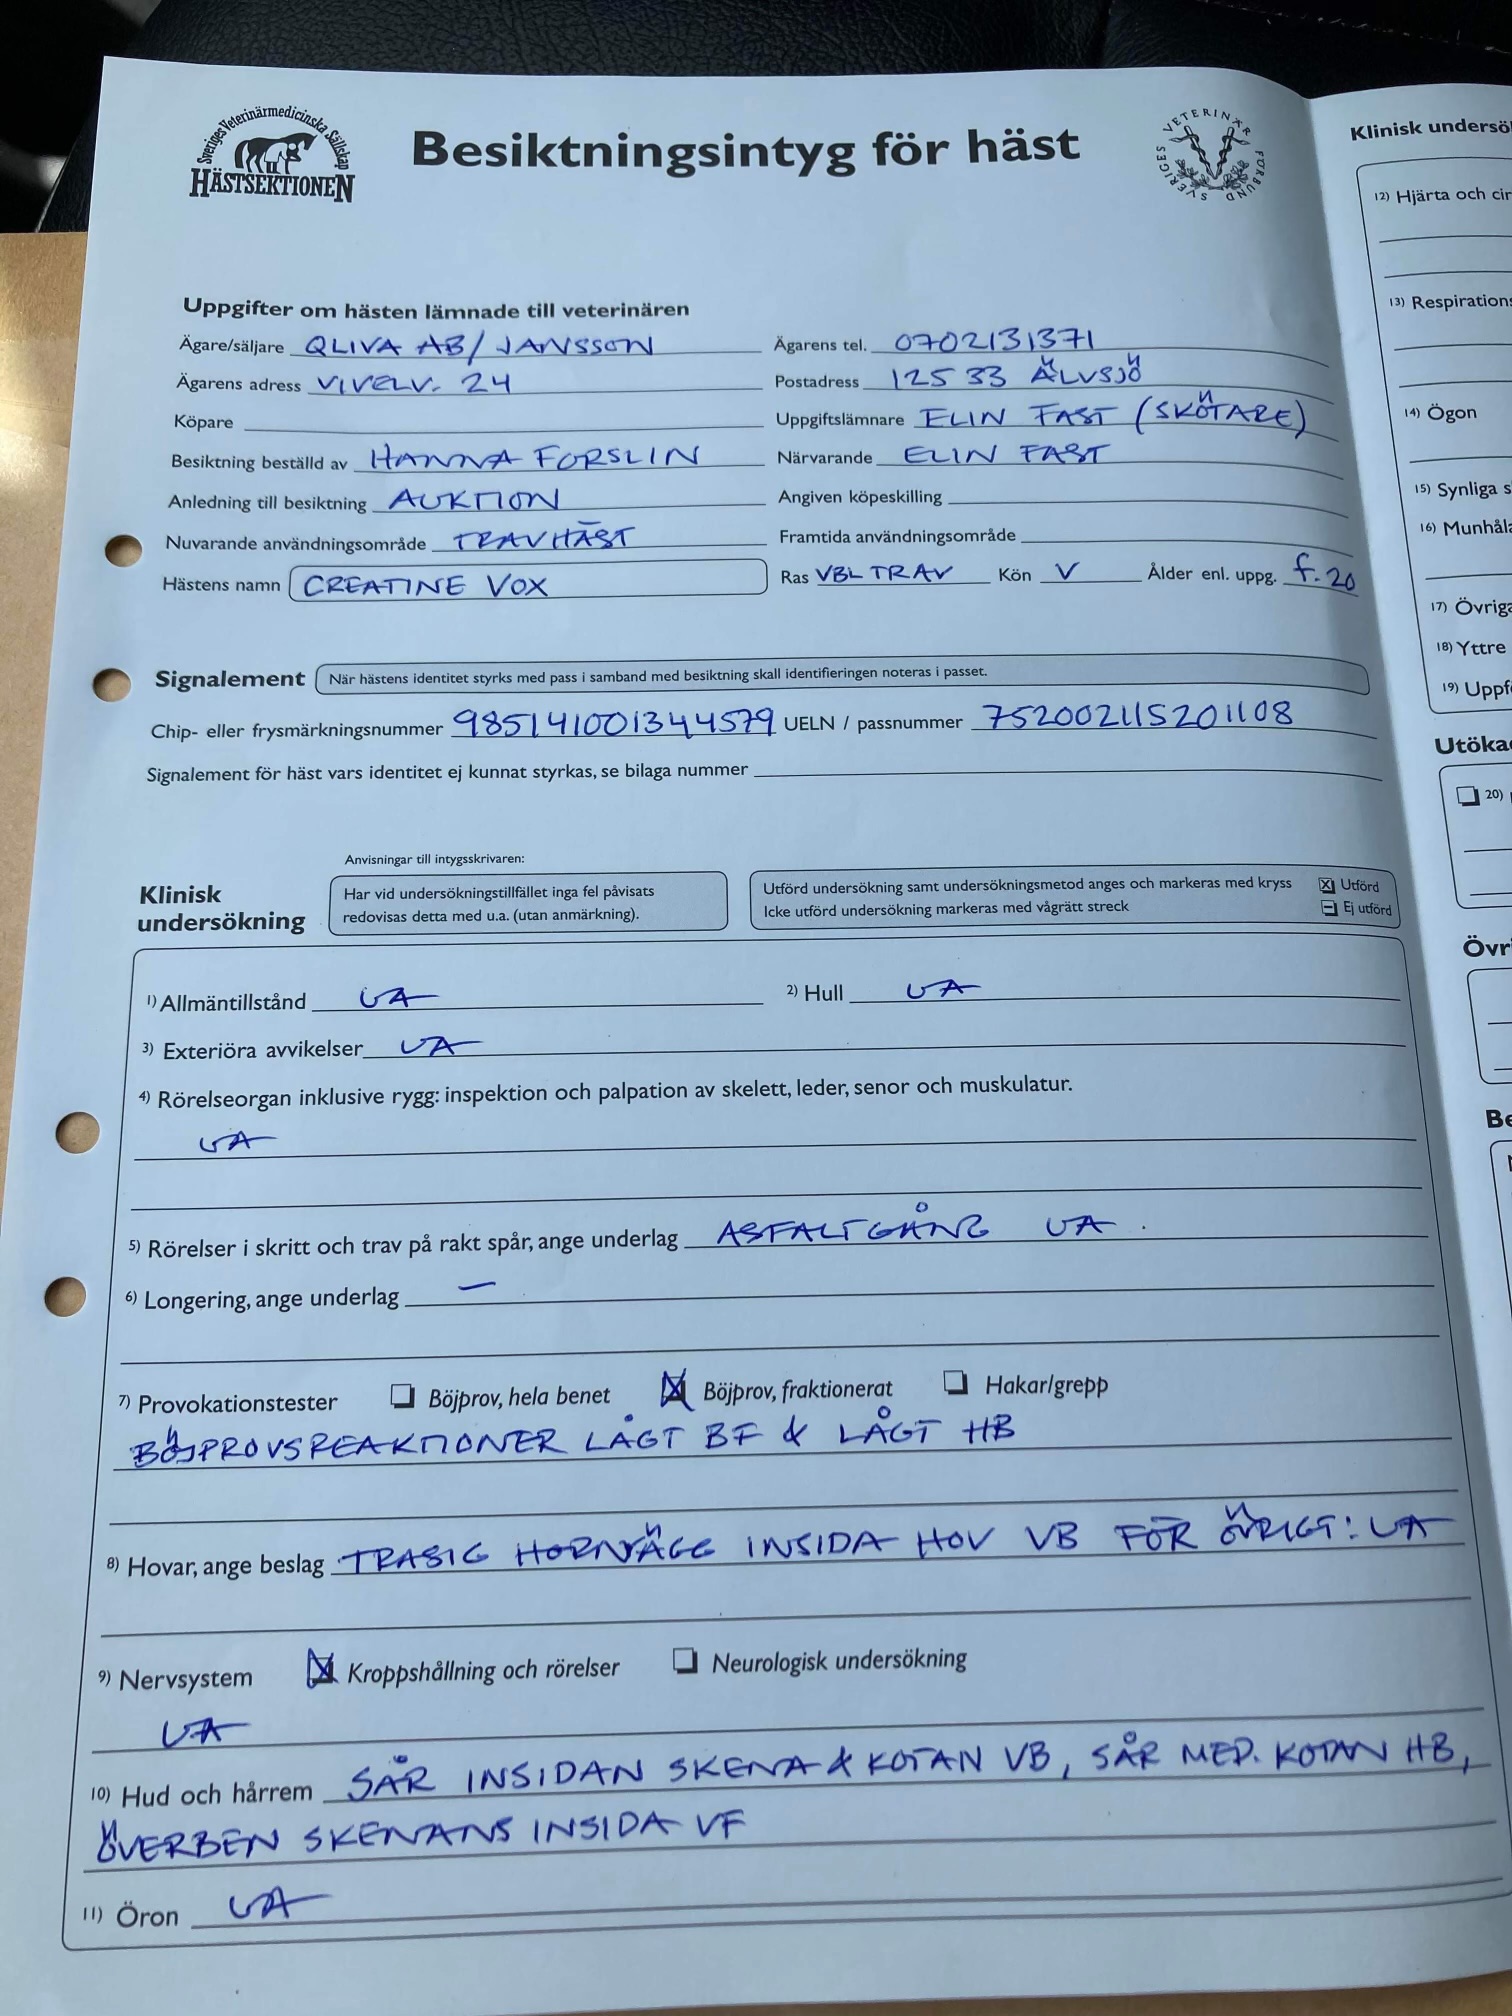 Sveriges Veterinärmedicinska Sällskap
HÄSTSEKTIONEN
Besiktningsintyg för häst
SVERIGES VETERINÄRFÖRBUND
Uppgifter om hästen lämnade till veterinären
Ägare/säljare QLIVA AB/JANSSON
Ägarens tel. 0702131371
Ägarens adress VIVELV. 24
Postadress 125 33 ÄLVSJÖ
Köpare
Uppgiftslämnare ELIN FAST (SKÖTARE)
Besiktning beställd av HANNA FORSLIN
Närvarande ELIN FAST
Anledning till besiktning AUKTION
Angiven köpeskilling
Nuvarande användningsområde TRAVHÄST
Framtida användningsområde
Hästens namn CREATINE VOX
Ras VBL TRAV Kön V Ålder enl. uppg. f. 20
Signalement När hästens identitet styrks med pass i samband med besiktning skall identifieringen noteras i passet.
Chip- eller frysmärkningsnummer 985141001344579 UELN / passnummer 752002115201108
Signalement för häst vars identitet ej kunnat styrkas, se bilaga nummer
Anvisningar till intygsskrivaren:
Klinisk
undersökning
Har vid undersökningstillfället inga fel påvisats
redovisas detta med u.a. (utan anmärkning).
Utförd undersökning samt undersökningsmetod anges och markeras med kryss Utförd
Icke utförd undersökning markeras med vågrätt streck Ej utförd
1) Allmäntillstånd UA
2) Hull UA
3) Exteriöra avvikelser UA
4) Rörelseorgan inklusive rygg: inspektion och palpation av skelett, leder, senor och muskulatur.
UA
5) Rörelser i skritt och trav på rakt spår, ange underlag ASFALTGÅNG UA.
6) Longering, ange underlag –
7) Provokationstester Böjprov, hela benet Böjprov, fraktionerat Hakar/grepp
BÖJPROVSREAKTIONER LÅGT BF & LÅGT HB
8) Hovar, ange beslag TRASIG HORNVÄGG INSIDA HOV VB FÖR ÖVRIGT: UA
9) Nervsystem Kroppshållning och rörelser Neurologisk undersökning
UA
10) Hud och hårrem SÅR INSIDAN SKENA & KOTAN VB, SÅR MED. KOTAN HB,
ÖVERBEN SKENANS INSIDA VF
11) Öron UA
Klinisk undersö
12) Hjärta och cir
13) Respirations
14) Ögon
15) Synliga s
16) Munhåla
17) Övriga
18) Yttre
19) Uppfö
Utöka
20)
Övr
Be